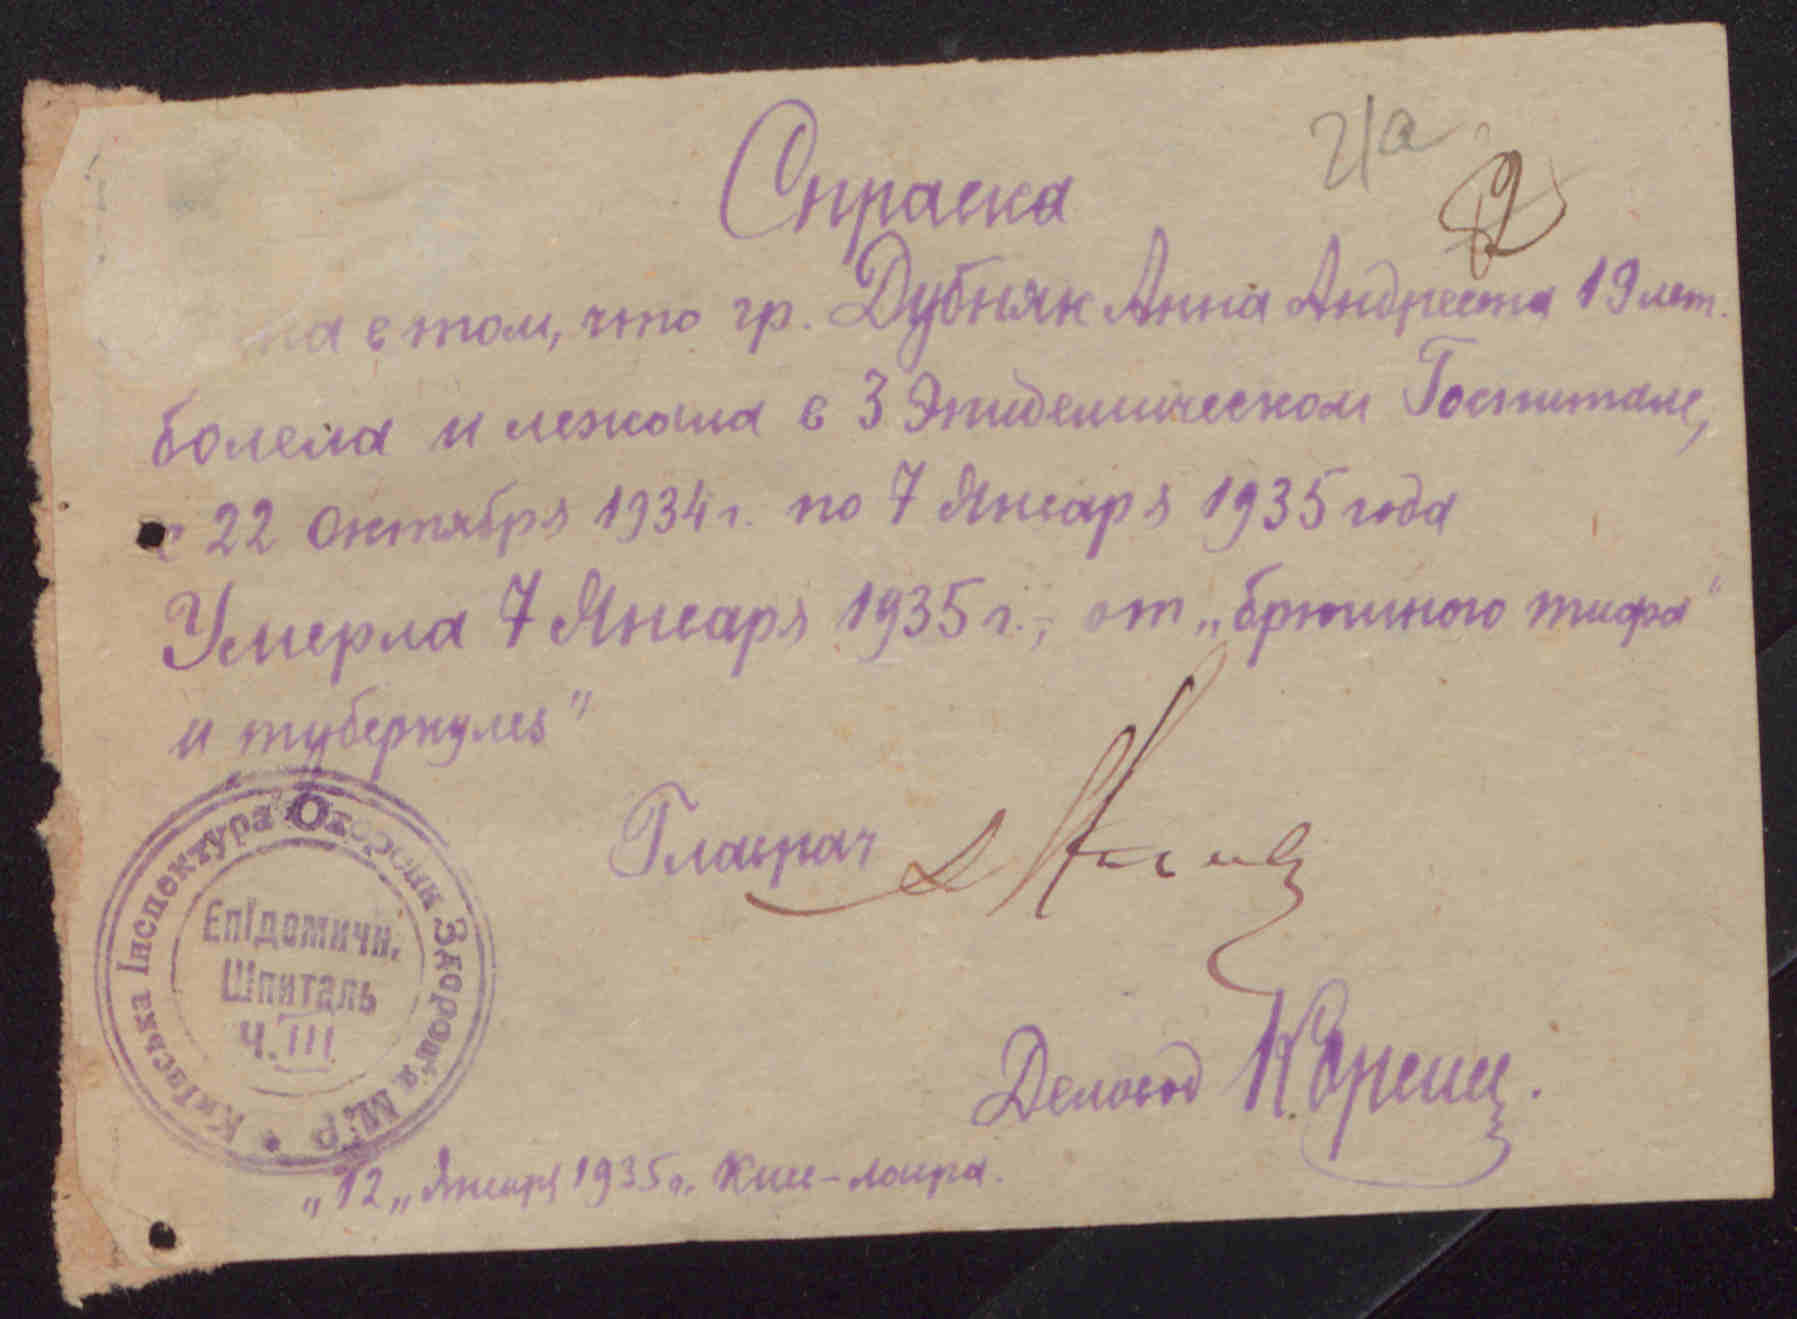 Справка
2/а
2
на в том, что гр. Дубняк Анна Андреевна 19 лет.
болела и лежала в 3 Эпидемическом Госпитале,
с 22 Октября 1934 г. по 7 Января 1935 года
Умерла 7 Января 1935 г., от „брюшного тифа"
и туберкулез"
Главрач
Деловод
Київська Інспектура Охорони Здоров'я
Епідемичн.
Шпиталь
Ч. III
„12„ Января 1935 г. Киев-лавра.